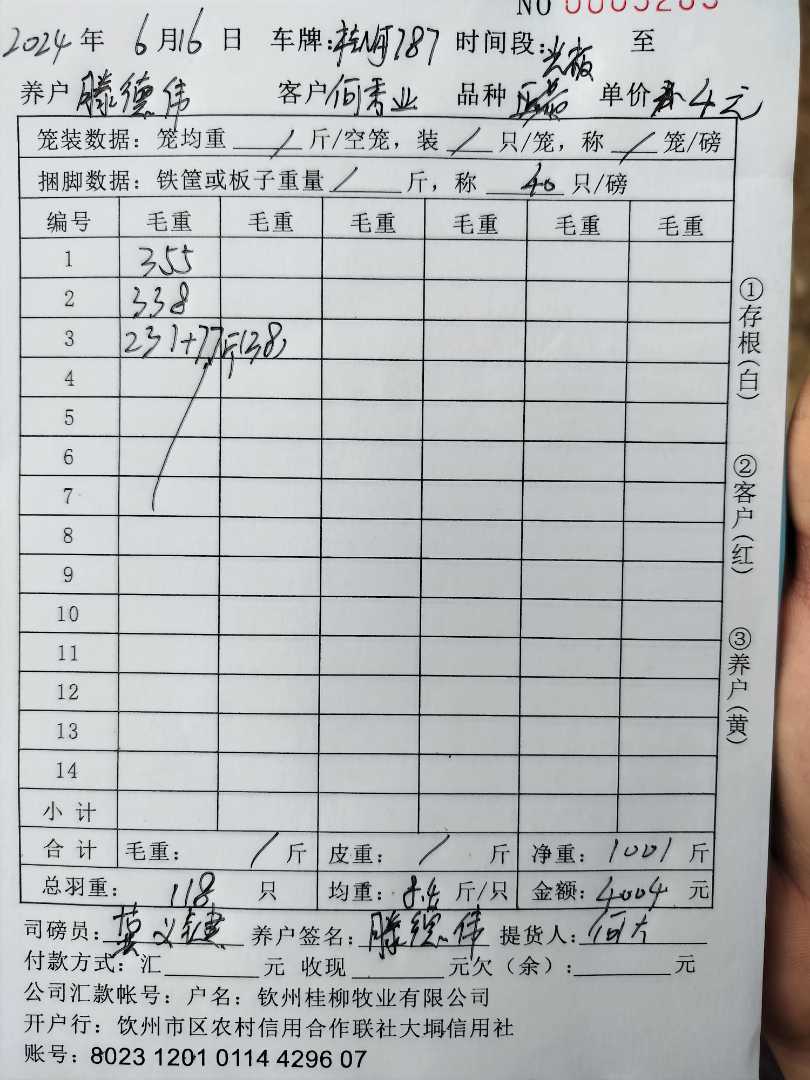 NO 0005205
2024 年 6 月 16 日 车牌: 787 时间段: 至
养户 滕德伟 客户 何秀业 品种 单价 4元
笼装数据: 笼均重 / 斤/空笼, 装 / 只/笼, 称 / 笼/磅
捆脚数据: 铁筐或板子重量 / 斤, 称 40 只/磅
编号 毛重 毛重 毛重 毛重 毛重 毛重
1 355
2 338
3 231+77斤(38)
4
5
6
7
8
9
10
11
12
13
14
小 计
合 计 毛重: / 斤 皮重: / 斤 净重: 1001 斤
总羽重: 118 只 均重: 8.4 斤/只 金额: 4004 元
司磅员: 养户签名: 滕德伟 提货人:
付款方式: 汇 元 收现 元欠(余): 元
公司汇款帐号: 户名: 钦州桂柳牧业有限公司
开户行: 饮州市区农村信用合作联社大垌信用社
账号: 8023 1201 0114 4296 07
①存根(白)
②客户(红)
③养户(黄)